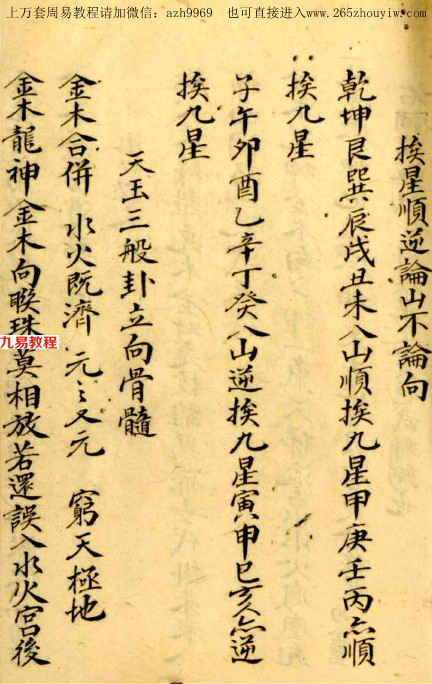 上万套周易教程请加微信：azh9969 也可直接进入www.265zhouyiw.com
挨星順逆論山不論向
乾坤艮巽辰戌丑未八山順挨九星甲庚壬丙亦順
挨九星
子午卯酉乙辛丁癸八山逆挨九星寅申巳亥亦逆
挨九星
天玉三般卦立向骨髓
金木合併 水火旣濟 元之又元 窮天極地
金木龍神金木向睽珠莫相放若還誤入水火宮後
九易教程